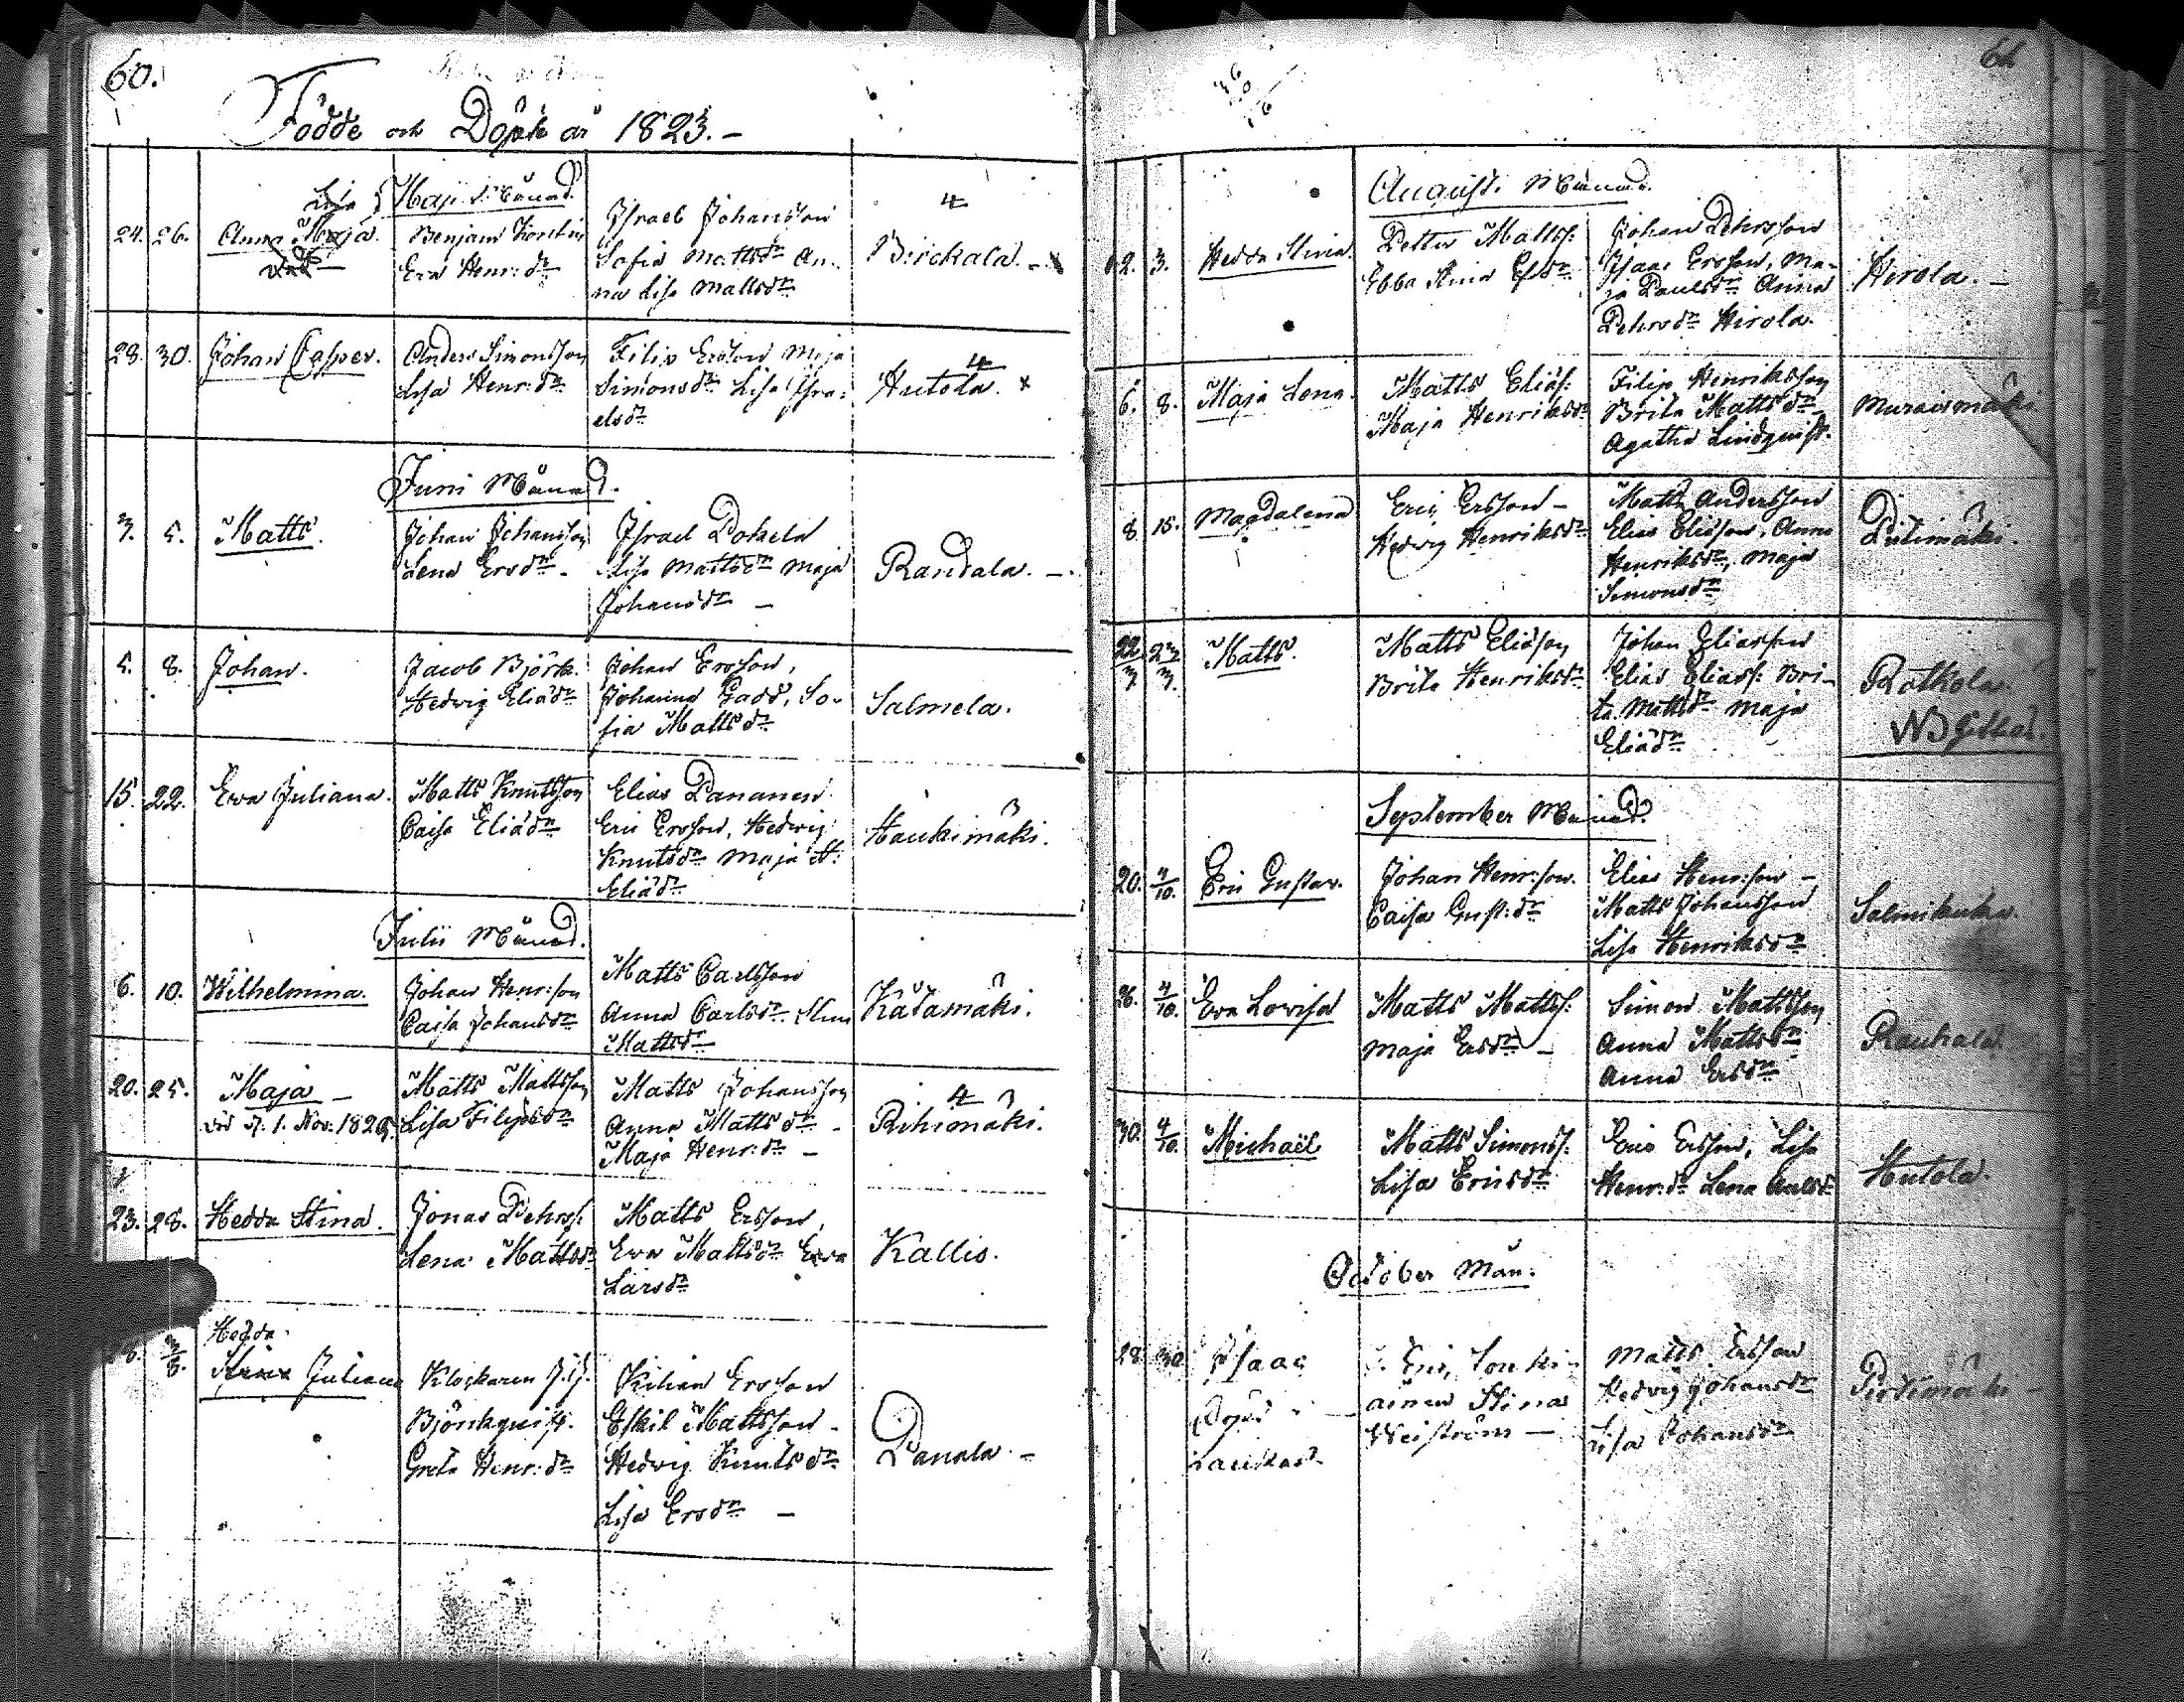 60.
Födde och Döpte år 1823.-
Maji Månad.
24. 26. Anna Maja. Lisa
Benjam
Eva Henr:dr
Israel Johansson
Sofia Mattsdr An-
na Lisa Mattsdr
4
Birckala.
28. 30. Johan Casper.
Anders Simonsson
Lisa Henr:dr
Filip Ersson Maja
Simonsdr Lisa Isra-
elsdr
4
Hutola. x
Juni Månad.
3. 5. Matts.
Johan Johansson
Lena Ersdr -
Israel Pokela
Lisa Mattsdr Maja
Johansdr -
Randala. -
5. 8. Johan.
Jacob Björk.
Hedvig Eliädr
Johan Ersson,
Johanna Gadd, So-
fia Mattsdr
Salmela.
15. 22. Eva Juliana.
Matts Knutsson
Caisa Eliädr
Elias Pananen
Eric Ersson, Hedvig
Knutsdr Maja H:
Eliädr
Haukimäki.
Julii Månad.
6. 10. Wilhelmina.
Johan Henr:son
Caisa Johansdr
Matts Carlsson
Anna Carlsdr Stina
Mattsdr
Katamäki.
20. 25. Maja -
död d. 1. Nov: 1829.
Matts Mattsson
Lisa Filipsdr
Matts Johansson
Anna Mattsdr -
Maja Henr:dr -
4
Rihimäki.
23. 28. Hedda Stina.
Jonas Pehrss.
Lena Mattsdr
Matts Ersson,
Eva Mattsdr Eva
Larsdr
Kallis.
3/8. Hedda
Stina Juliana
Klockaren J.J.
Björkqvist.
Greta Henr:dr
Kilian Ersson
Eskil Mattsson -
Hedvig Knutsdr
Lisa Ersdr -
Panala -
61
August. Månad.
2. 3. Hedda Stina.
Petter Matts:
Ebba Stina Efsdr
Johan Pehrsson
Isaac Ersson, Ma-
ja Paulsdr Anna
Pehrsdr Hirola.
Hirola. -
6. 8. Maja Lena.
Matts Eliäs:
Maja Henriksdr
Filip Henriksson
Brita Mattsdr
Agatha Lindqvist.
Muraismäki
8. 15. Magdalena
Eric Ersson -
Hedvig Henriksdr
Matts Andersson
Elias Eliäson, Anna
Henriksdr, Maja
Simonsdr
Pitimäki.
22/7 27/7 Matts.
Matts Eliäson
Brita Henriksdr
Johan Eliasson
Elias Eliass: Bri-
ta Mattsdr Maja
Eliädr
Rotkola.
NB
September Månad.
20. 4/10. Eric Gustav.
Johan Henr:son.
Caisa Gust:dr
Elias Henr:son -
Matts Johansson
Lisa Henriksdr
Salmikuka.
26. 4/10. Eva Lovisa
Matts Mattss:
Maja Ersdr -
Simon Mattsson
Anna Mattsdr
Anna Ersdr
Rauhala.
30. 4/10. Michaël
Matts Simonss:
Lisa Ericsdr
Eric Ersson, Lisa
Henr:dr Lena
Hutola.
October Mån:
28. 30. Isaac
Eric, Louki-
ainen Stina
Weiström -
Matts Ersson
Hedvig Johansdr
Lisa Johansdr